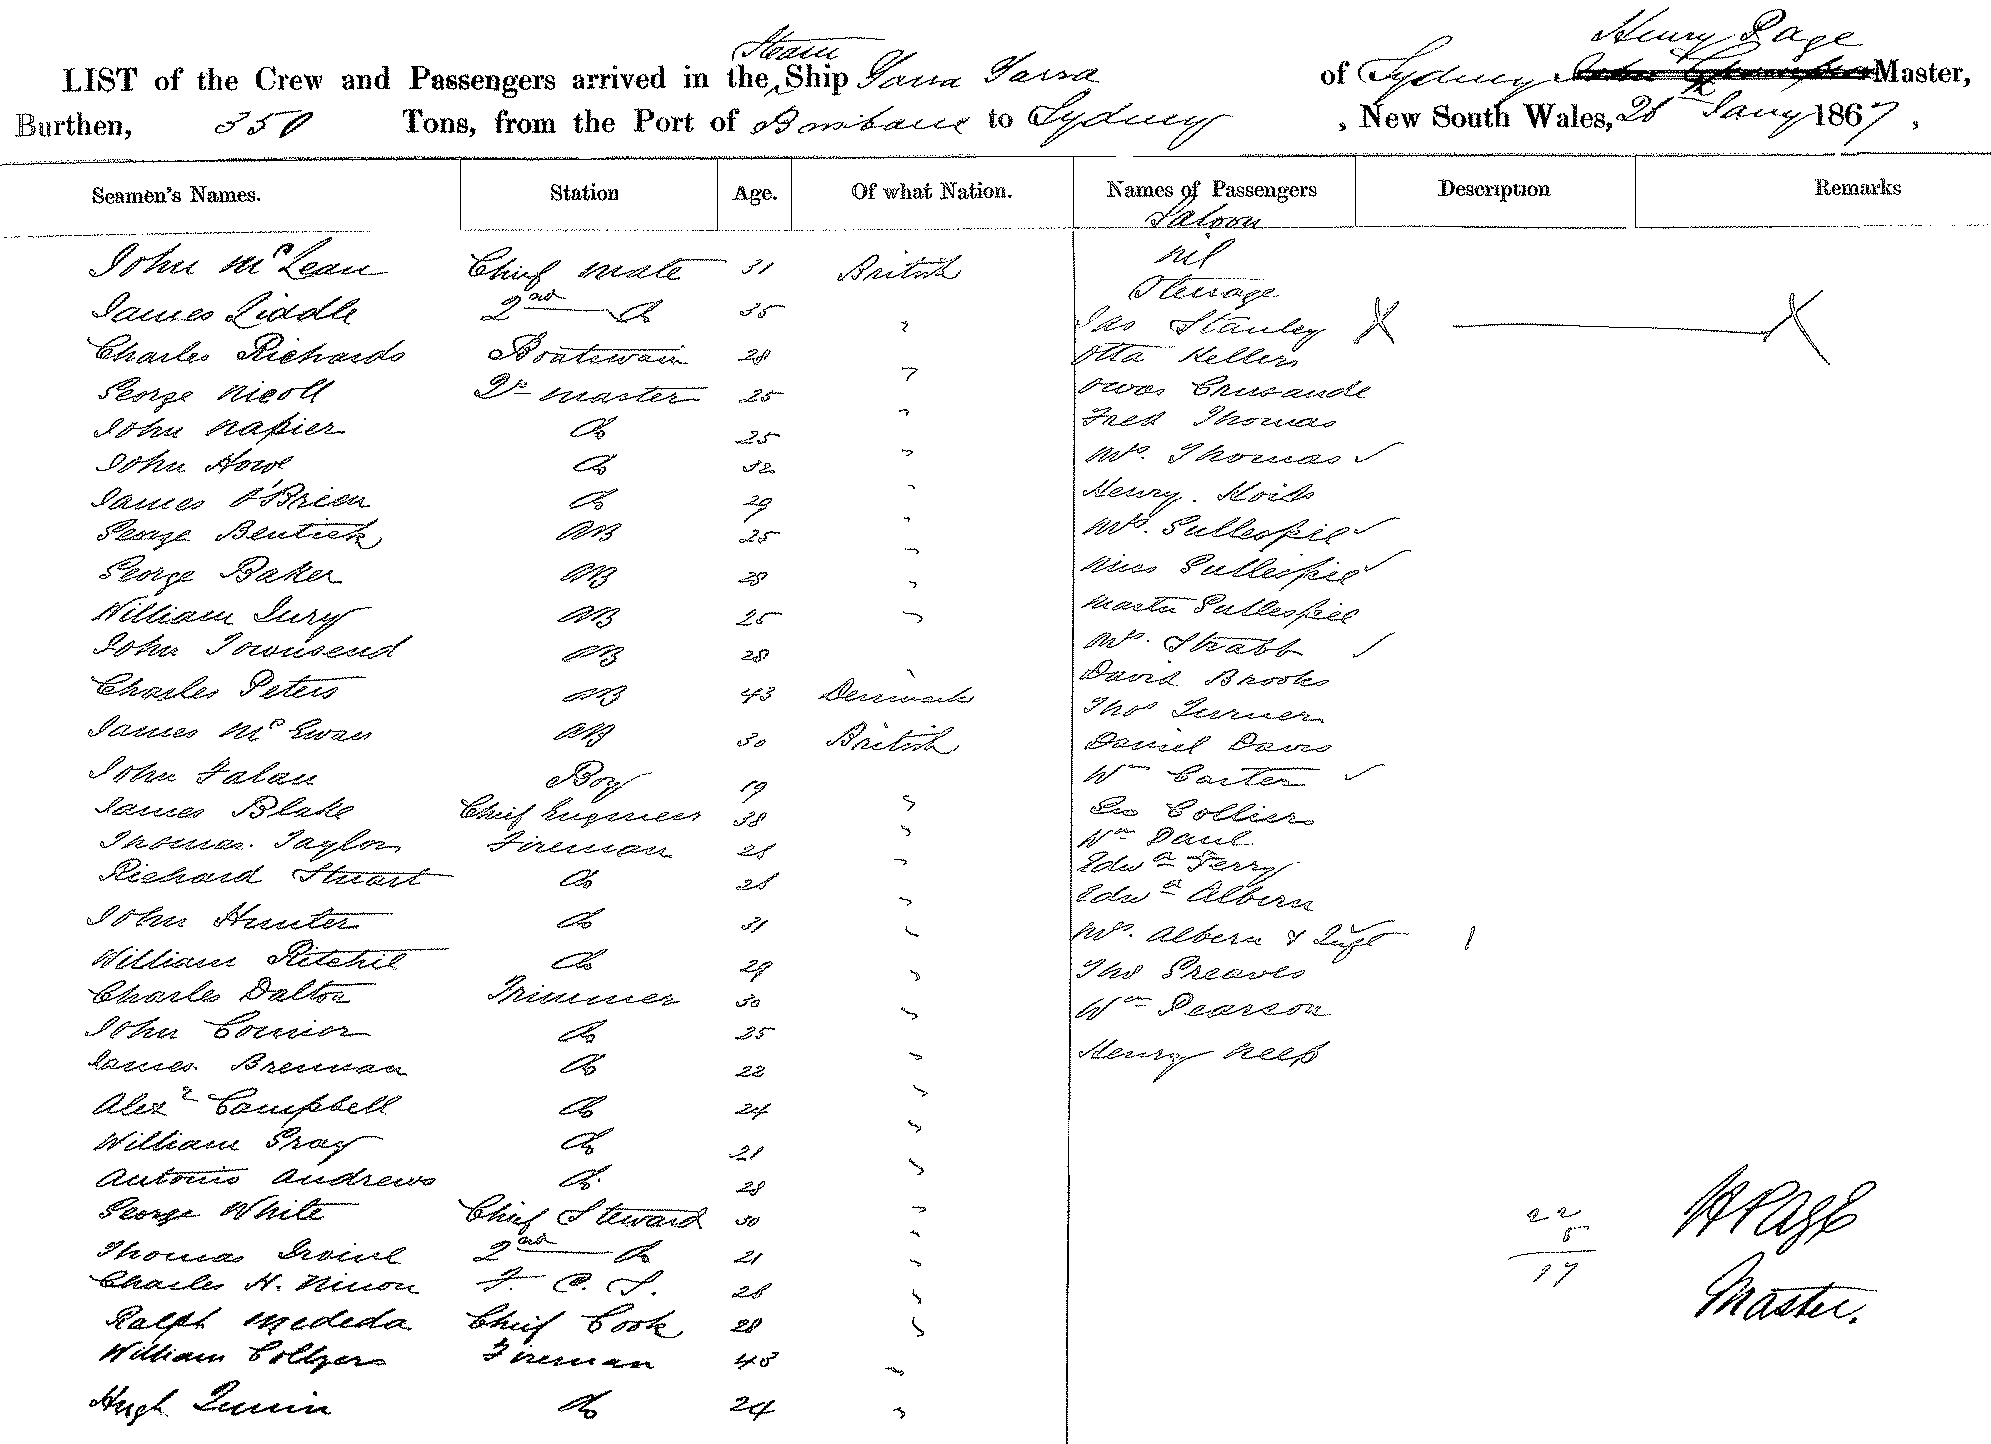 Henry Page
Steam
LIST of the Crew and Passengers arrived in the Ship Yarra Yarra of Sydney Master,
Burthen, 350 Tons, from the Port of Brisbane to Sydney, New South Wales, 28th Jany 1867,
Seamen's Names. Station Age. Of what Nation. Names of Passengers Description Remarks
Saloon
John McLean Chief Mate 31 British nil
Steerage
James Liddle 2nd Do 35 " Jas Stanley X X
Charles Richards Boatswain 28 " Otta Kellers
George Nicoll Qr Master 25 " Crusaude
John Napier Do 25 " Fred Thomas
John Howe Do 32 " Mrs. Thomas ✓
James O'Brien Do 29 " Henry
George Bentick AB 25 " Mrs. Gullespie ✓
George Baker AB 28 " Miss Gullespie ✓
William Jury AB 25 " Master Gullespie
John Townsend AB 28 " Mrs. Strabb ✓
Charles Peters AB 43 Denmark David Brooks
Thos Turner
James McEwan AB 30 British Daniel Davis
John Falan Boy 19 " Wm Carter ✓
James Blake Chief Engineer 38 " Geo Collier
Thomas Taylor Fireman 28 " Wm Daul
Edwd Terry
Richard Stuart Do 28 " Edwd Albern
John Hunter Do 31 " Mrs. Albern & Inft
William Ritchie Do 29 " Thos Greaves
Charles Dalton Trimmer 30 " Wm Pearson
John Connor Do 25 " Henry Neep
James Brennan Do 22 "
Alexr Campbell Do 24 "
William Gray Do 21 "
Antonio Andrews Do 28 "
George White Chief Steward 30 " 22
5
Thomas Irvine 2nd Do 21 " 17
H Page
Charles H. Ninon F. C. S. 28 "
Master.
Ralph Mededa Chief Cook 28 "
William Collyers Fireman 43 "
Hugh Quinn Do 24 "